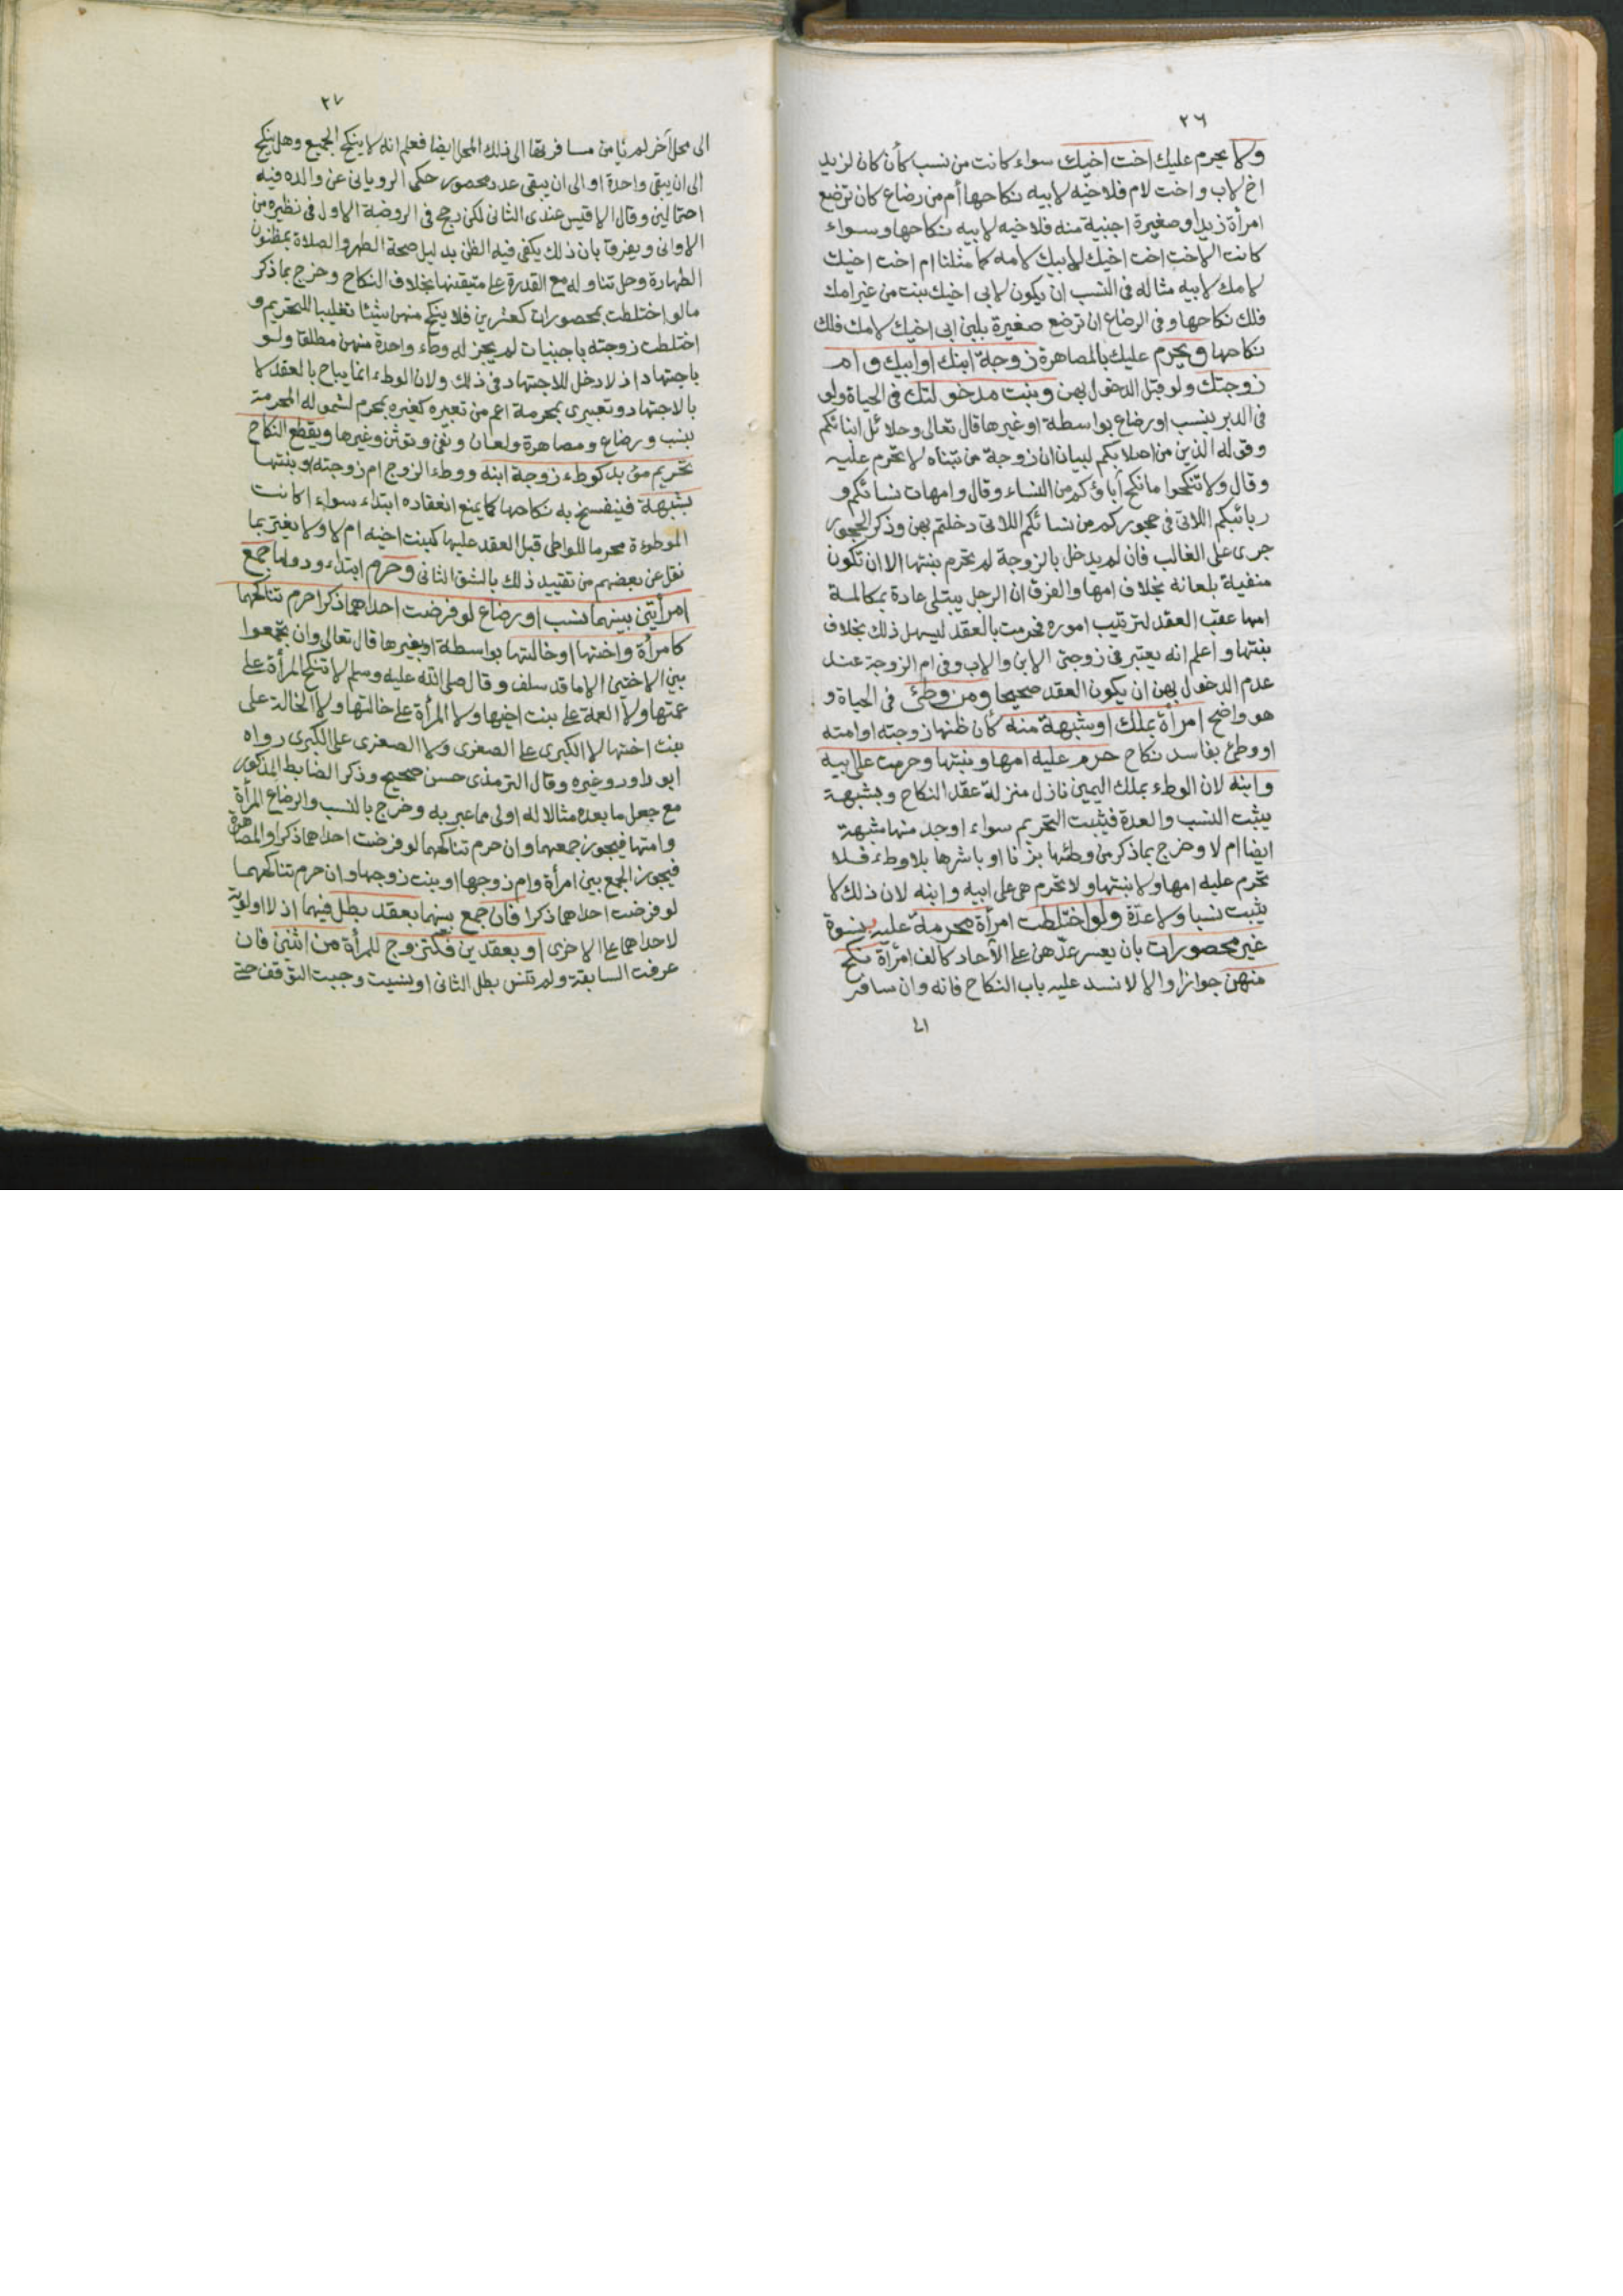 ٢٦
ولا يحرم عليك اخت اخيك سواء كانت من نسب كأن كان لزيد
اخ لاب واخت لام فلاخيه لابيه نكاحها أم من رضاع كان ترضع
امرأة زيدا وصغيرة اجنبية منه فلاخيه لابيه نكاحها وسواء
كانت الاخت اخت اخيك لابيك لامه كما مثلنا ام اخت اخيك
لامك لابيه مثاله فى النسب ان يكون لابى اخيك بنت من غير امك
فلك نكاحها وفى الرضاع ان ترضع صغيرة بلبن ابى اخيك لامك فلك
نكاحها ويحرم عليك بالمصاهرة زوجة ابنك او ابيك وام
زوجتك ولو قبل الدخول بهن وبنت مدخولتك فى الحياة ولو
فى الدبر بنسب او رضاع بواسطة او غيرها قال تعالى وحلائل ابنائكم
وقوله الذين من اصلابكم لبيان ان زوجة من تبناه لا تحرم عليه
وقال ولا تنكحوا ما نكح آباؤكم من النساء وقال وامهات نسائكم و
ربائبكم اللاتى فى حجوركم من نسائكم اللاتى دخلتم بهن وذكر الحجور
جرى على الغالب فان لم يدخل بالزوجة لم تحرم بنتها الا ان تكون
منفية بلعانه بخلاف امها والفرق ان الرجل يبتلى عادة بمكالمة
امها عقب العقد لترتيب اموره فحرمت بالعقد ليسهل ذلك بخلاف
بنتها واعلم انه يعتبر فى زوجتى الابن والاب وفى ام الزوجة عند
عدم الدخول بهن ان يكون العقد صحيحا ومن وطئ فى الحياة و
هو واضح امرأة بملك او شبهة منه كأن ظنها زوجته او امته
او وطئ بفاسد نكاح حرم عليه امها وبنتها وحرمت على ابيه
وابنه لان الوطء بملك اليمين نازل منزلة عقد النكاح وبشبهة
يثبت النسب والعدة فيثبت التحريم سواء اوجد منها شبهة
ايضا ام لا وخرج بما ذكر من وطئها بزنا او باشرها بلا وطء فلا
تحرم عليه امها ولا بنتها ولا تحرم هى على ابيه وابنه لان ذلك لا
يثبت نسبا ولا عدة ولو اختلطت امرأة محرمة عليه بنسوة
غير محصورات بان يعسر عدهن على الآحاد كالف امرأة نكح
منهن جوازا والا لانسد عليه باب النكاح فانه وان سافر
الى
٢٧
الى محل آخر لم يأمن مسافرتها الى ذلك المحل ايضا فعلم انه لا ينكح الجميع وهل ينكح
الى ان يبقى واحدة او الى ان يبقى عدد محصور حكى الرويانى عن والده فيه
احتمالين وقال الاقيس عندى الثانى لكن رجح فى الروضة الاول فى نظيره من
الاوانى ويفرق بان ذلك يكفى فيه الظن بدليل صحة الطهر والصلاة بمظنون
الطهارة وحل تناوله مع القدرة على متيقنها بخلاف النكاح وخرج بما ذكر
ما لو اختلطت بمحصورات كعشرين فلا ينكح منهن شيئا تغليبا للتحريم و
اختلطت زوجته باجنبيات لم يجز له وطء واحدة منهن مطلقا ولو
باجتهاد اذ لا دخل للاجتهاد فى ذلك ولان الوطء انما يباح بالعقد لا
بالاجتهاد وتعبيرى بمحرمة اعم من تعبيره كغيره بمحرم لشموله المحرمة
بنسب ورضاع ومصاهرة ولعان ونفى وتوثن وغيرها ويقطع النكاح
تحريم مؤبد كوطء زوجة ابنه ووطء الزوج ام زوجته او بنتها
بشبهة فينفسخ به نكاحها كما يمنع انعقاده ابتداء سواء اكانت
الموطوءة محرما للواطئ قبل العقد عليها كبنت اخيه ام لا ولا يغتر بما
نقل عن بعضهم من تقييد ذلك بالشق الثانى وحرم ابتداء ودواما جمع
امرأتين بينهما نسب او رضاع لو فرضت احداهما ذكرا حرم تناكحهما
كامرأة واختها او خالتها بواسطة او بغيرها قال تعالى وان تجمعوا
بين الاختين الا ما قد سلف وقال صلى الله عليه وسلم لا تنكح المرأة على
عمتها ولا العمة على بنت اخيها ولا المرأة على خالتها ولا الخالة على
بنت اختها لا الكبرى على الصغرى ولا الصغرى على الكبرى رواه
ابو داود وغيره وقال الترمذى حسن صحيح وذكر الضابط المذكور
مع جعل ما بعده مثالا له اولى مما عبر به وخرج بالنسب والرضاع المرأة
وامتها فيجوز جمعهما وان حرم تناكحهما لو فرضت احداهما ذكرا والمصاهرة
فيجوز الجمع بين امرأة وام زوجها او بنت زوجها وان حرم تناكحهما
لو فرضت احداهما ذكرا فان جمع بينهما بعقد بطل فيهما اذ لا اولوية
لاحداهما على الاخرى او بعقدين فكتزوج للمرأة من اثنين فان
عرفت السابقة ولم تنس بطل الثانى او نسيت وجبت التوقف حتى